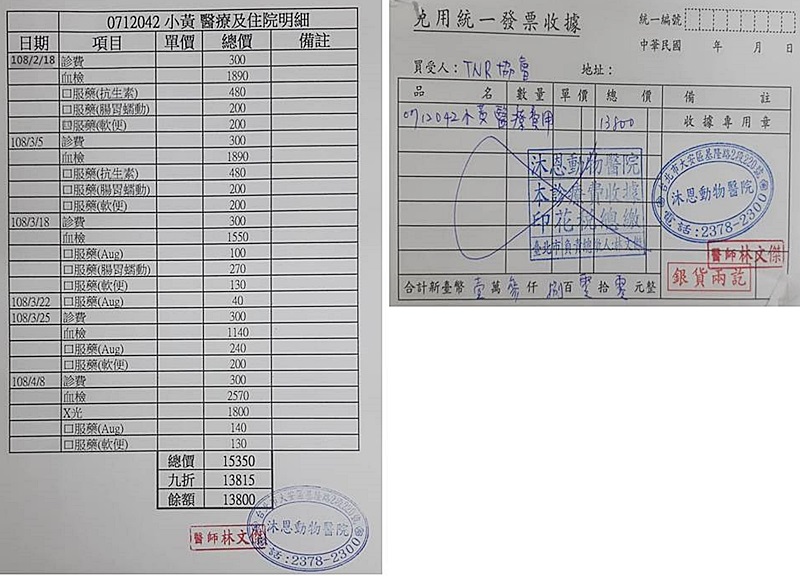 0712042 小黃 醫療及住院明細
日期 項目 單價 總價 備註
108/2/18 診費 300
血檢 1890
口服藥(抗生素) 480
口服藥(腸胃蠕動) 200
口服藥(軟便) 200
108/3/5 診費 300
血檢 1890
口服藥(抗生素) 480
口服藥(腸胃蠕動) 200
口服藥(軟便) 200
108/3/18 診費 300
血檢 1550
口服藥(Aug) 100
口服藥(腸胃蠕動) 270
口服藥(軟便) 130
108/3/22 口服藥(Aug) 40
108/3/25 診費 300
血檢 1140
口服藥(Aug) 240
口服藥(軟便) 200
108/4/8 診費 300
血檢 2570
X光 1800
口服藥(Aug) 140
口服藥(軟便) 130
總價 15350
九折 13815
餘額 13800
醫師林文傑
台北市大安區基隆路2段220號
沐恩動物醫院
電話:2378-2300
免用統一發票收據
統一編號
中華民國 年 月 日
買受人:TNR協會 地址:
品名 數量 單價 總價 備註
0712042小黃醫療費用 13800 收據專用章
沐恩動物醫院
本診療費收據
印花稅總繳
臺北市負責總繳人:林文傑
台北市大安區基隆路2段220號
沐恩動物醫院
電話:2378-2300
醫師林文傑
銀貨兩訖
合計新臺幣 壹萬參仟捌百零拾零元整